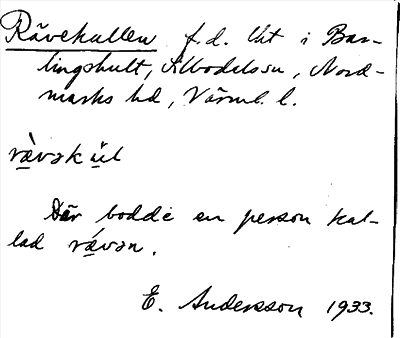 Rävekullen f.d. lht i Bar-
lingshult, Älbodelssn, Nord-
marks hd, Värml. l.
rà̤vək ṳ̆l
Där bodde en person kal-
lad rá̤vən.
E. Andersson 1933.